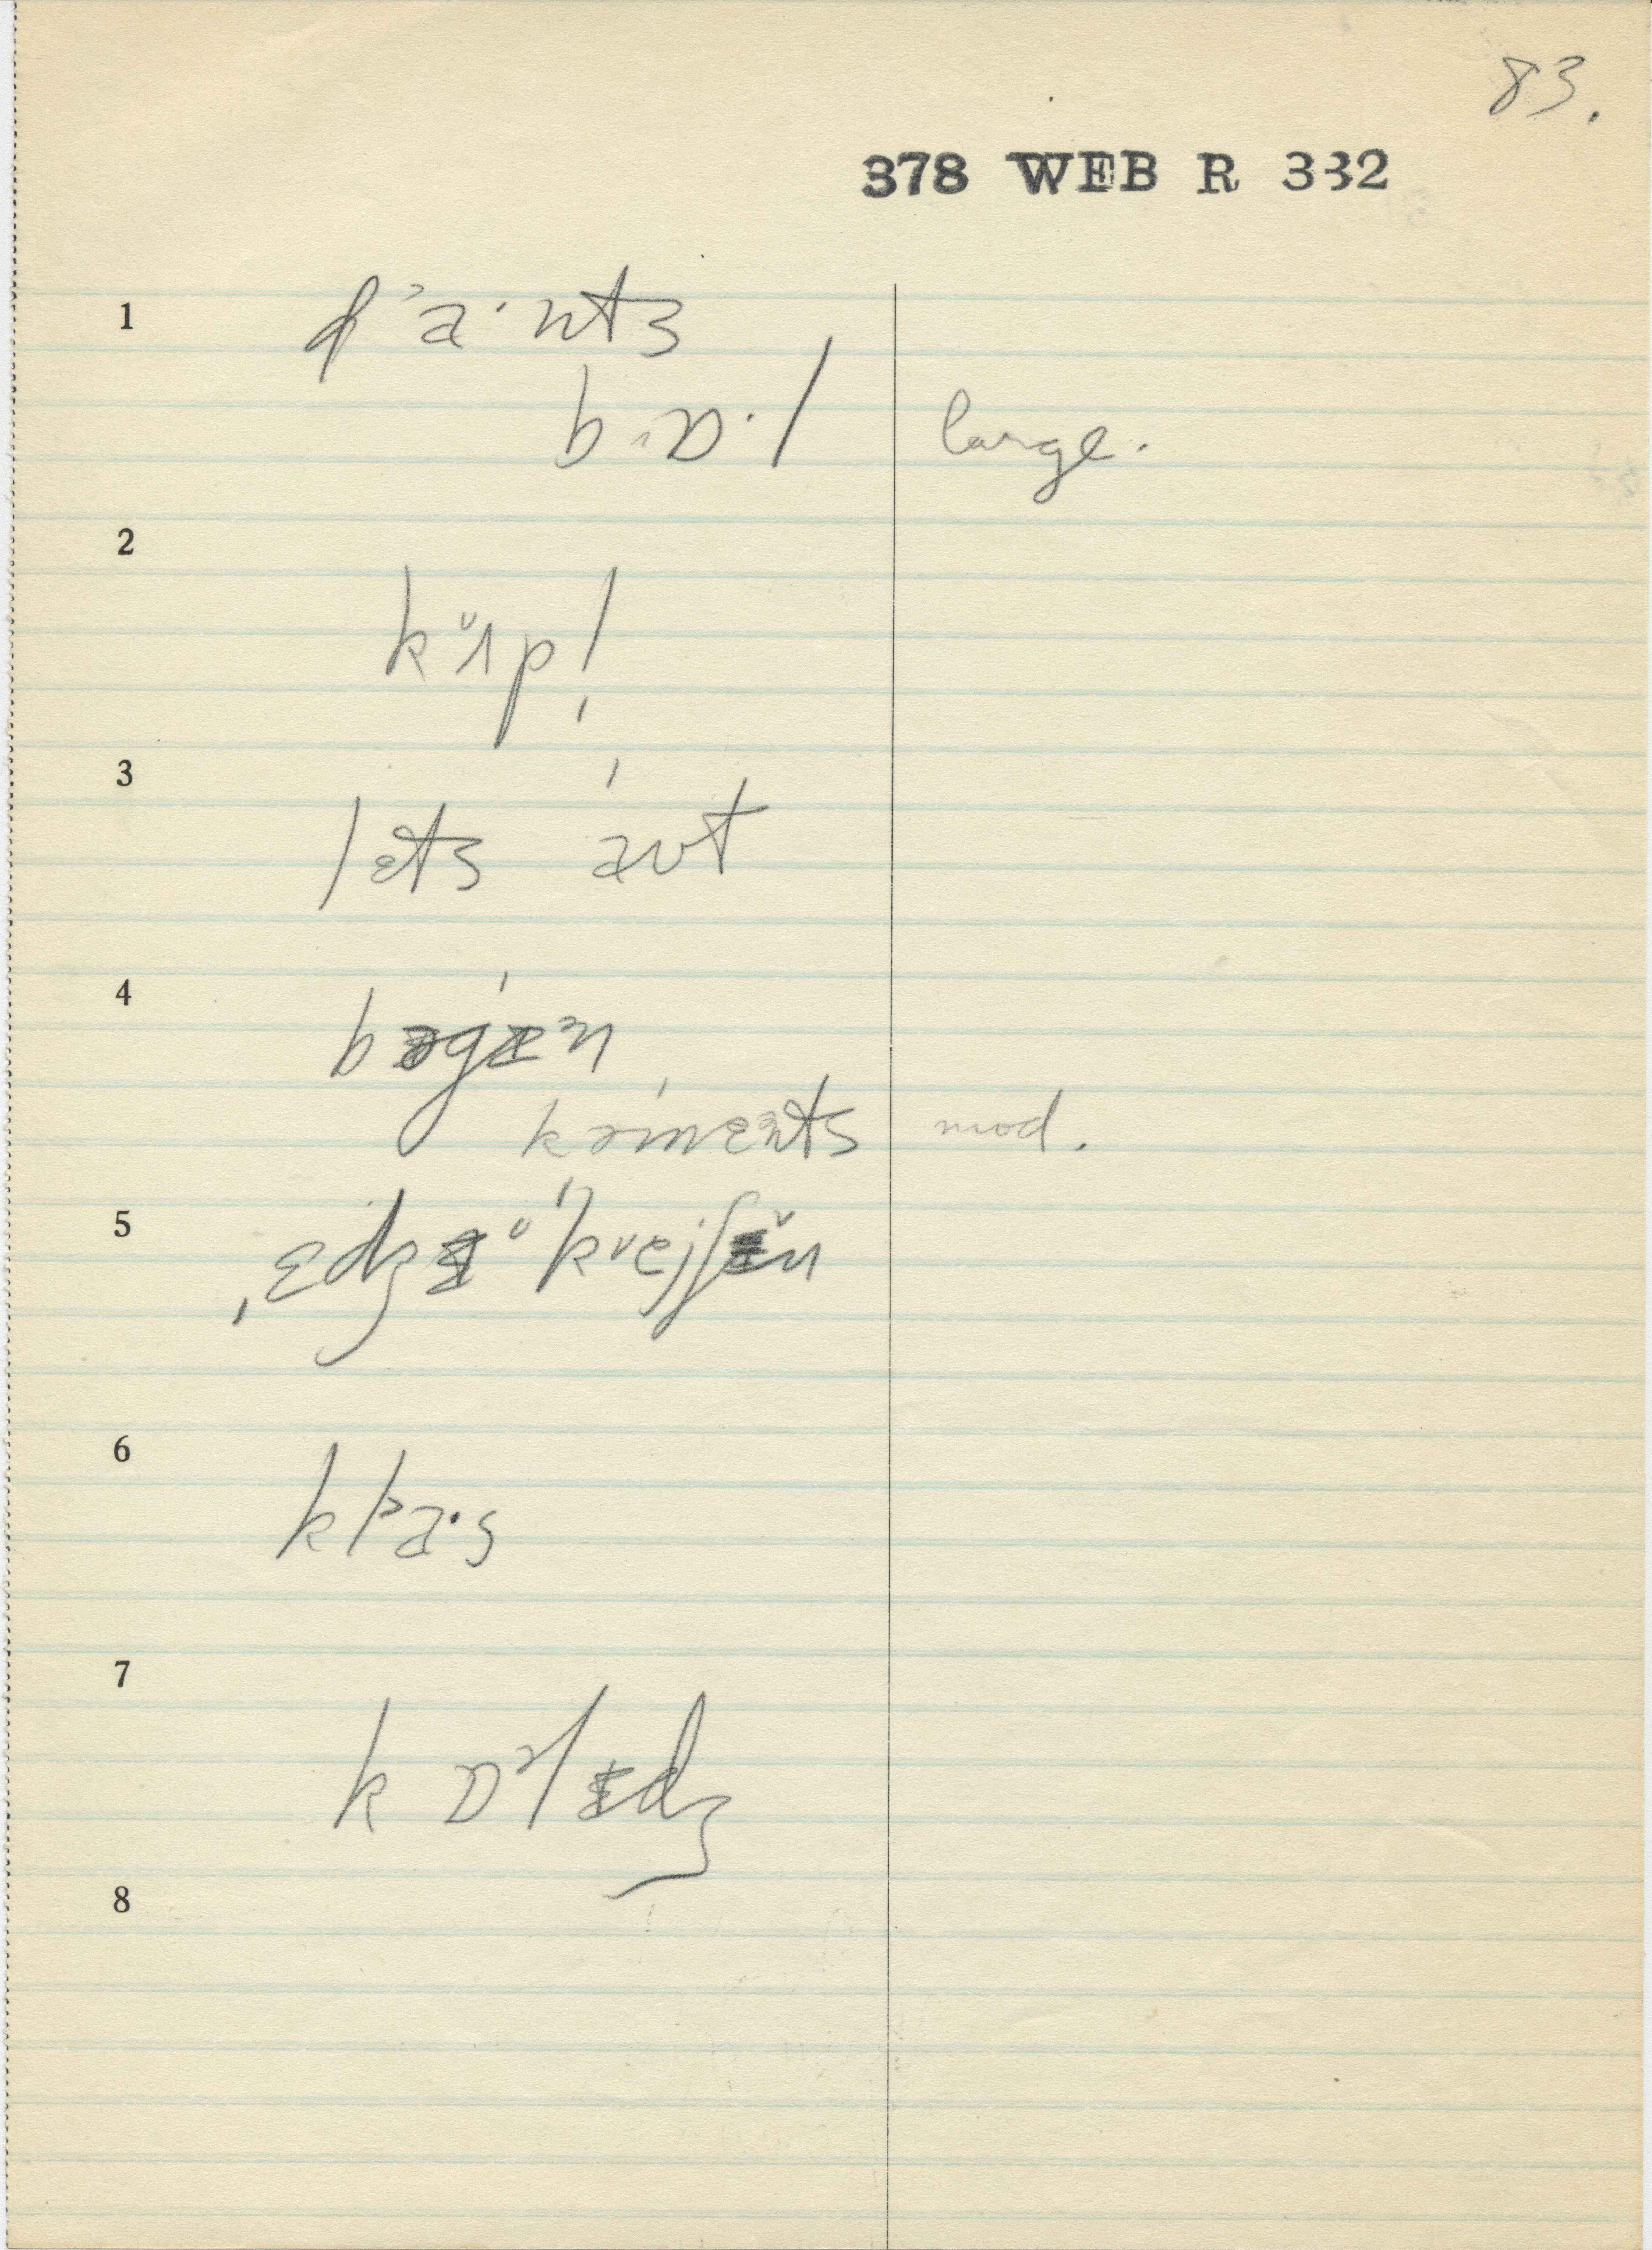 83.
378 WEB R 332
1 dᵊa·nts
bɒ·l large.
2
kʌ̆pl̩
3
lɛts aʊt
4
bəgɪᵊn
kəmɛnts mod.
5 ˌɛdʒəˈkeɪʃən
6
klᵊa·s
7
kɒᵊlɪdʒ
8